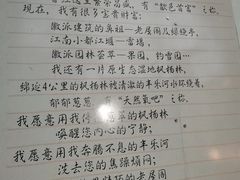 现在，我有很多宝贵财富：
徽派建筑的鼻祖—老屋阁及绿绕亭，
江南小都江堰—雷堨，
徽派园林荟萃—果园、钓雪园…
我还有一片原生态湿地枫杨林，
绵延4公里的枫杨林被清澈的丰乐河水环绕着，
郁郁葱葱 "天然氧吧"之称，
我愿意用我 的枫杨林
唤醒您内心的宁静；
我愿意用我奔腾不息的丰乐河
洗去您的焦躁烦闷；
的老屋阁